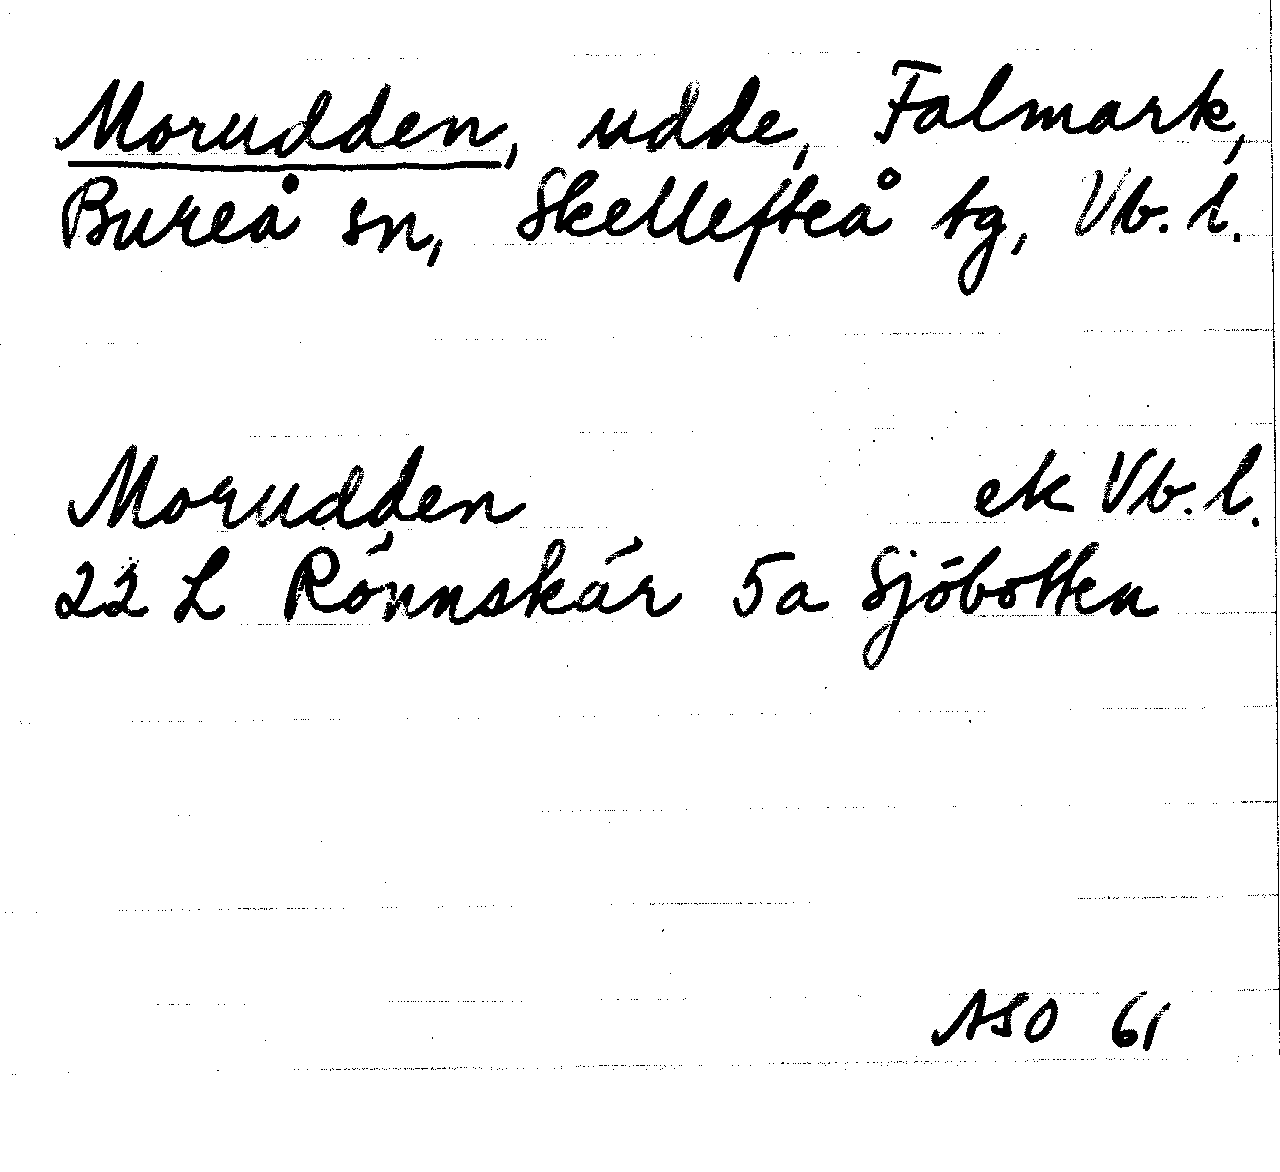 Morudden, udde, Falmark,
Bureå sn, Skellefteå tg, Vb. l.
Morudden ek Vb. l.
22 L Rönnskär 5a Sjöbotten
ASO 61